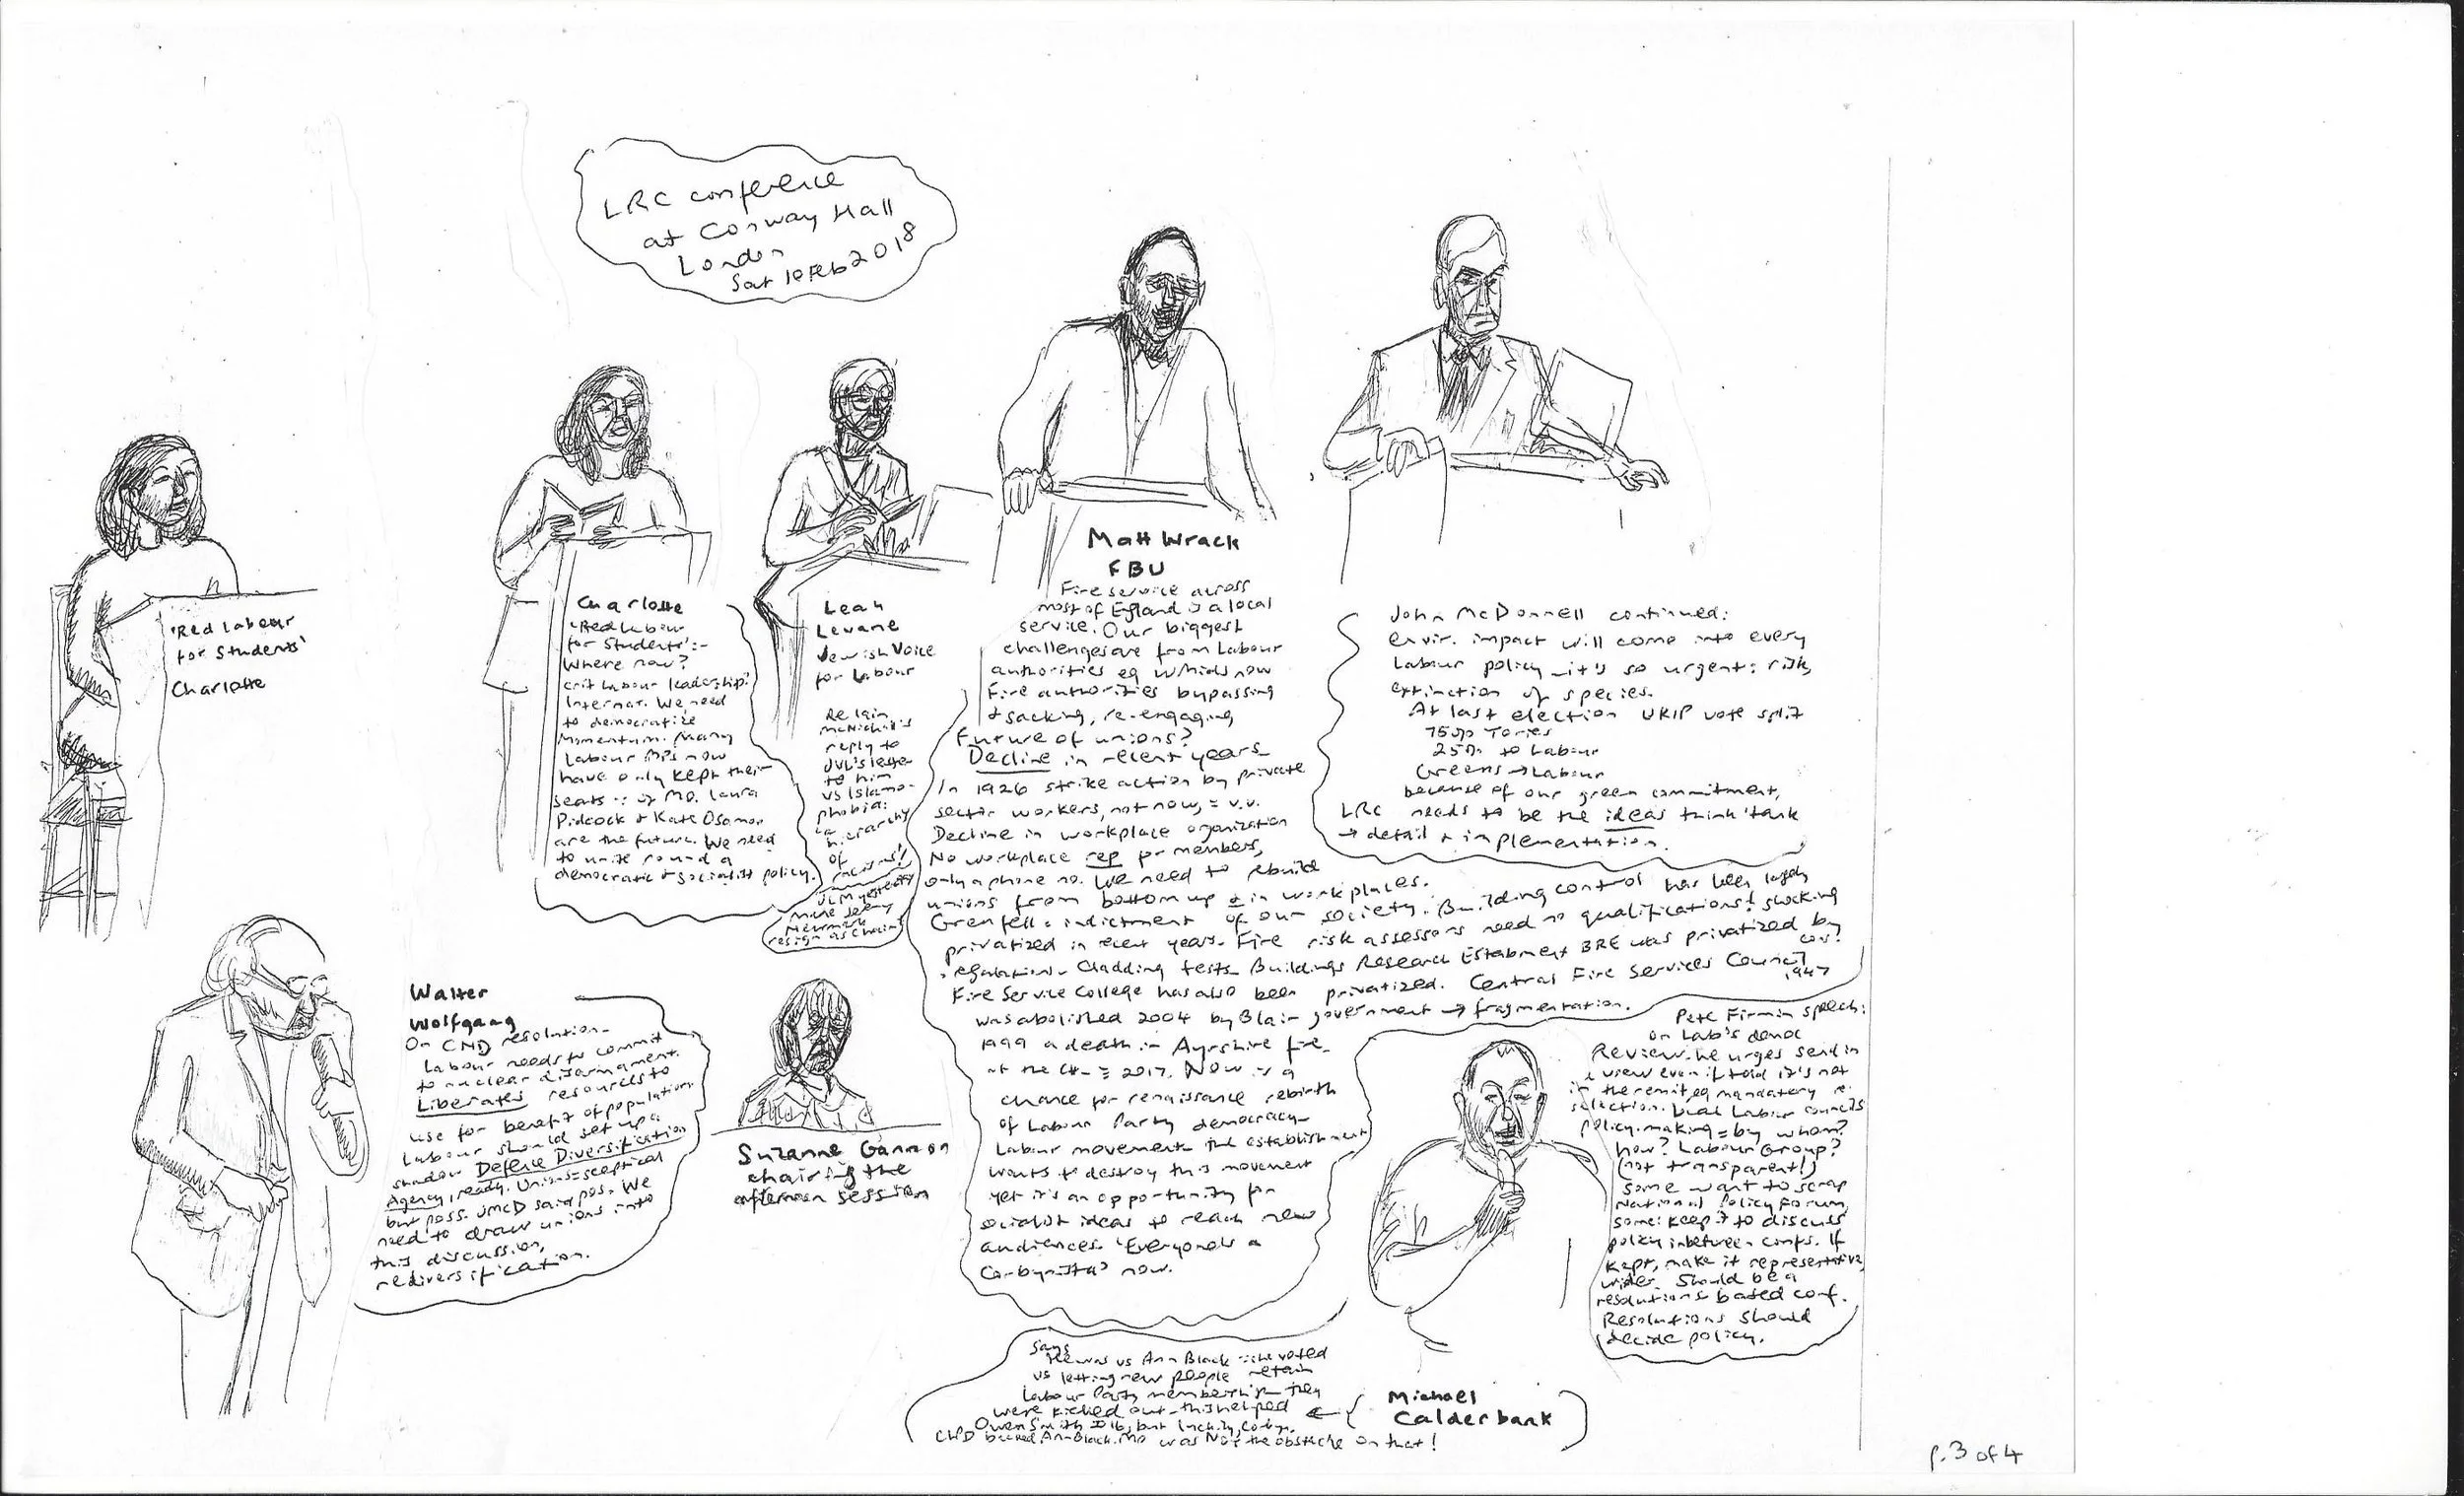 LRC conference
at Conway Hall
London
Sat 10 Feb 2018
'Red Labour
for Students'
Charlotte
Charlotte
'Red Labour
for Students':-
Where now?
crit Labour leadership?
Internat. We need
to democratize
Momentum. Many
Labour MPs now
have only kept their
seats ∵ of Mo. Laura
Pidcock & Kate Osamor
are the future. We need
to unite round a
democratic & socialist policy.
Leah
Levane
Jewish Voice
for Labour
Re Iain
McNichol's
reply to
JVL's letter
to him
vs Islamo-
phobia:
a hierarchy
of
racisms!
JLM
made Jeremy
Newmark
resign as chair!
Matt Wrack
FBU
Fire service across
most of England is a local
service. Our biggest
challenges are from Labour
authorities eg W Mids now
Fire authorities bypassing
& sacking, re-engaging
Future of unions?
Decline in recent years
In 1926 strike action by private
sector workers, not now, = v.v.
Decline in workplace organization
No workplace rep for members,
only a phone no. We need to rebuild
unions from bottom up & in workplaces.
Grenfell: indictment of our society. Building control has been largely
privatized in recent years. Fire risk assessors need no qualifications! shocking
regulation. Cladding tests Buildings Research Establment BRE was privatized by
Fire Service College has also been privatized. Central Fire Services Council 1947
was abolished 2004 by Blair government → fragmentation.
1999 a death in Ayrshire fire
2017. Now is a
chance for renaissance rebirth
of Labour Party democracy
Labour movement. The establishment
wants to destroy this movement
yet it's an opportunity for
socialist ideas to reach new
audiences. 'Everyone's a
Corbynista' now.
John McDonnell continued:
envir. impact will come into every
Labour policy - it's so urgent: risk,
extinction of species.
At last election UKIP vote split
75% Tories
25% to Labour
Greens → Labour
because of our green commitment,
LRC needs to be the ideas think tank
→ detail & implementation.
Walter
Wolfgang
On CND resolution-
Labour needs to commit
to nuclear disarmament.
Liberates resources to
use for benefit of population.
Labour should set up a
shadow Defence Diversification
Agency, ready. Unions sceptical
but poss. JMcD said pos. We
need to draw unions into
this discussion,
rediversification.
Suzanne Gannon
chairing the
afternoon session
Pete Firmin speech:
on Lab's democ
Review. he urges send in
a view even if told it's not
in the remit, eg mandatory re-
selection. Local Labour councils
policy-making = by whom?
how? Labour Group?
(not transparent!)
some want to scrap
National Policy Forum,
some: keep it to discuss
policy inbetween confs. If
kept, make it representative,
wider. Should be a
resolutions based conf.
Resolutions should
decide policy.
Says
He was vs Ann Black ∵ she voted
vs letting new people retain
Labour Party membership - they
were kicked out - this helped
Owen Smith, but luckily, Corbyn
CLPD backed Ann Black. Mo was Not the obstacle on that!
Michael
Calderbank
p.3 of 4